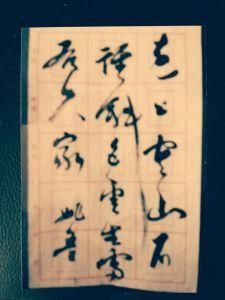 遠上寒山石
徑斜白雲生處
有人家 姚